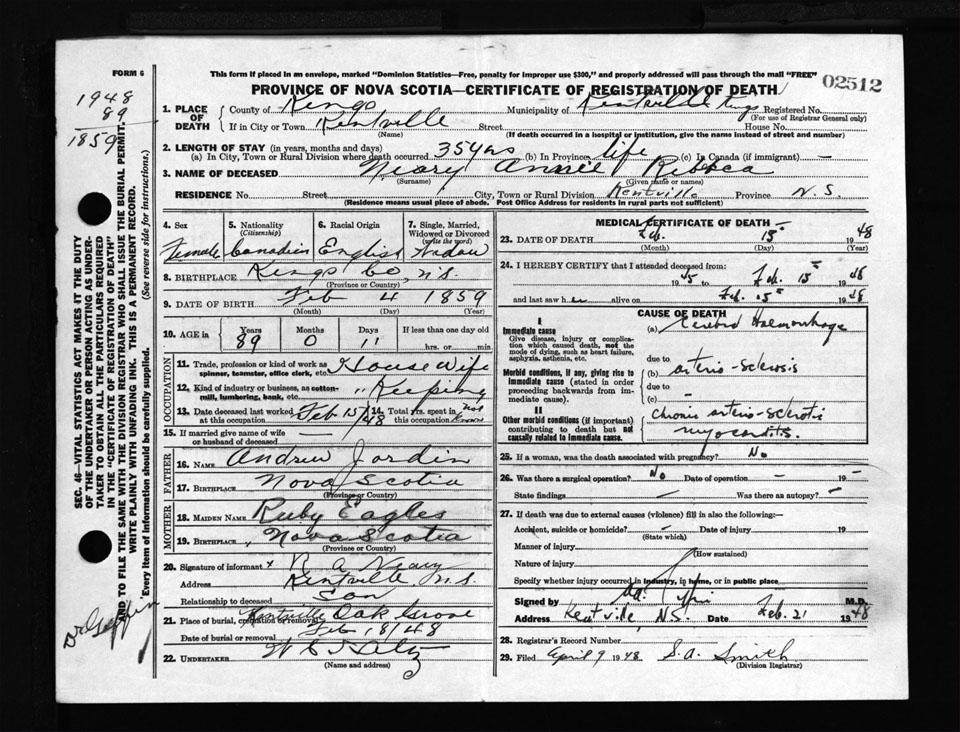 FORM 6
This form if placed in an envelope, marked "Dominion Statistics—Free, penalty for improper use $300," and properly addressed will pass through the mail "FREE"
02512
PROVINCE OF NOVA SCOTIA—CERTIFICATE OF REGISTRATION OF DEATH
1948
89
1859
1. PLACE OF DEATH
County of Kings Municipality of Kentville Kings Registered No.
(For use of Registrar General only)
If in City or Town Kentville Street House No.
(Name) (If death occurred in a hospital or institution, give the name instead of street and number)
2. LENGTH OF STAY (in years, months and days)
(a) In City, Town or Rural Division where death occurred 35 yrs (b) In Province life (c) In Canada (if immigrant) —
3. NAME OF DECEASED Neary Annie Rebeca
(Surname) (Given name or names)
RESIDENCE No. Street City, Town or Rural Division Kentville Province N.S.
(Residence means usual place of abode. Post Office Address for residents in rural parts not sufficient)
4. Sex Female
5. Nationality (Citizenship) Canadian
6. Racial Origin English
7. Single, Married, Widowed or Divorced (write the word) Widow
8. BIRTHPLACE Kings Co, N.S.
(Province or County)
9. DATE OF BIRTH Feb 4 1859
(Month) (Day) (Year)
10. AGE in Years Months Days If less than one day old
89 0 11 hrs. or min.
OCCUPATION
11. Trade, profession or kind of work as spinner, teamster, office clerk, etc. House Wife
12. Kind of industry or business, as cotton-mill, lumbering, bank, etc. " Keeping
13. Date deceased last worked at this occupation Feb 15/48
14. Total yrs. spent in this occupation not known
15. If married give name of wife or husband of deceased —
FATHER
16. NAME Andrew Jordin
17. BIRTHPLACE Nova Scotia
(Province or Country)
MOTHER
18. MAIDEN NAME Ruby Eagles
19. BIRTHPLACE Nova Scotia
(Province or Country)
20. Signature of informant x R A Neary
Address Kentville N.S.
Relationship to deceased Son
21. Place of burial, cremation or removal Kentville Oak Grove
Date of burial or removal Feb 18/48
22. UNDERTAKER
(Name and address)
MEDICAL CERTIFICATE OF DEATH
23. DATE OF DEATH Feb. 15 1948
(Month) (Day) (Year)
24. I HEREBY CERTIFY that I attended deceased from:
1945 to Feb. 15 1948
and last saw her alive on Feb. 15 1948
CAUSE OF DEATH
I
Immediate cause
Give disease, injury or complication which caused death, not the mode of dying, such as heart failure, asphyxia, asthenia, etc.
(a) Cerebral Haemorrhage
due to
Morbid conditions, if any, giving rise to immediate cause (stated in order proceeding backwards from immediate).
(b) arterio-sclerosis
due to
(c) —
II
Other morbid conditions (if important) contributing to death but not causally related to immediate cause.
chronic arterio-sclerotic
myocarditis.
25. If a woman, was the death associated with pregnancy? No
26. Was there a surgical operation? No Date of operation —
State findings — Was there an autopsy? —
27. If death was due to external causes (violence) fill in also the following:—
Accident, suicide or homicide? — Date of injury 19
(State which)
Manner of injury
(How sustained)
Nature of injury
Specify whether injury occurred in industry, in home, or in public place
Signed by M.D.
Address Kentville, N.S. Date Feb. 21 1948
28. Registrar's Record Number
29. Filed April 9 1948 S.A. Smith
(Division Registrar)
SEC. 46—VITAL STATISTICS ACT MAKES IT THE DUTY
OF THE UNDERTAKER OR PERSON ACTING AS UNDER-
TAKER TO OBTAIN ALL THE PARTICULARS REQUIRED
IN THE "CERTIFICATE OF REGISTRATION OF DEATH"
AND TO FILE THE SAME WITH THE DIVISION REGISTRAR WHO SHALL ISSUE THE BURIAL PERMIT.
WRITE PLAINLY WITH UNFADING INK. THIS IS A PERMANENT RECORD.
Every item of information should be carefully supplied. (See reverse side for instructions.)